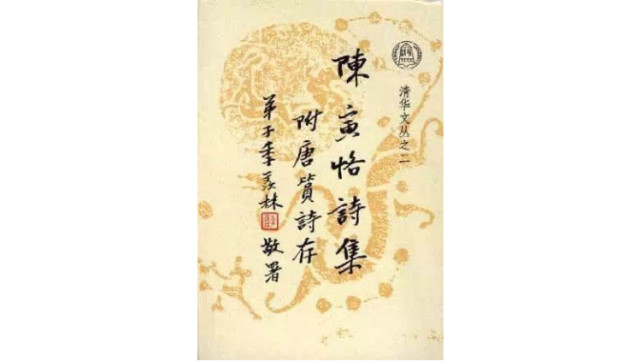 清华文丛之二
陳寅恪詩集
附唐篔詩存
弟子季羡林
敬署